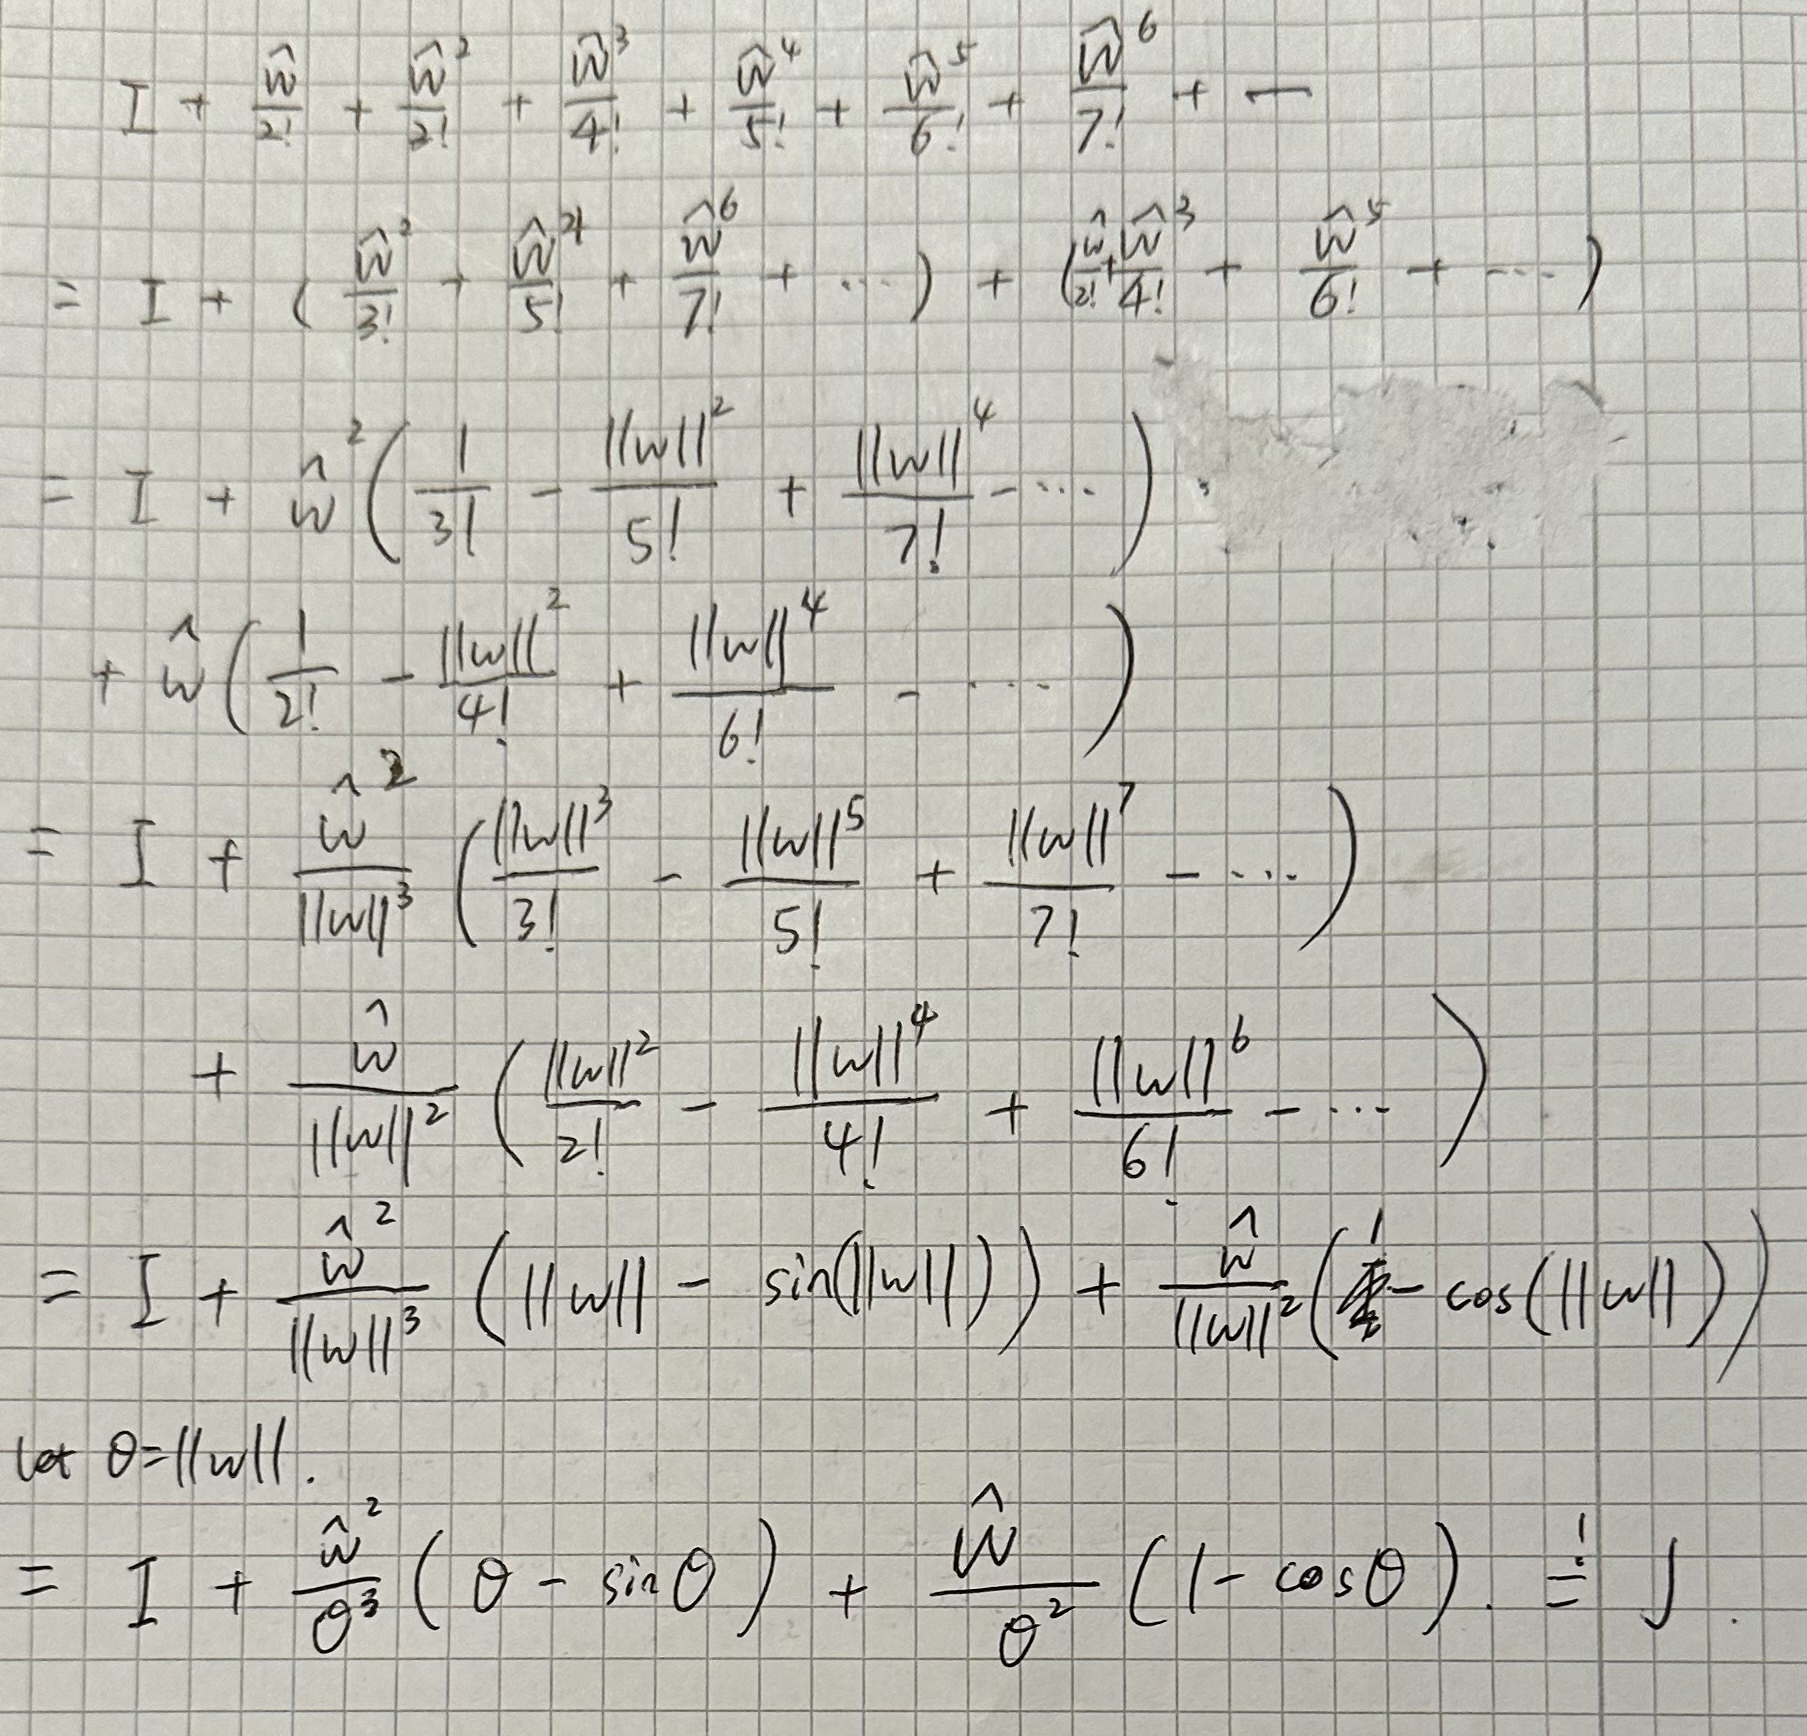 I + ŵ/2! + ŵ²/2! + ŵ³/4! + ŵ⁴/5! + ŵ⁵/6! + ŵ⁶/7! + —
= I + ( ŵ²/3! + ŵ⁴/5! + ŵ⁶/7! + ⋯ ) + ( ŵ/2! + ŵ³/4! + ŵ⁵/6! + ⋯ )
= I + ŵ² ( 1/3! − ||w||²/5! + ||w||⁴/7! − ⋯ )
+ ŵ ( 1/2! − ||w||²/4! + ||w||⁴/6! − ⋯ )
= I + ŵ²/||w||³ ( ||w||³/3! − ||w||⁵/5! + ||w||⁷/7! − ⋯ )
+ ŵ/||w||² ( ||w||²/2! − ||w||⁴/4! + ||w||⁶/6! − ⋯ )
= I + ŵ²/||w||³ ( ||w|| − sin(||w||) ) + ŵ/||w||² ( 1 − cos(||w||) )
let θ = ||w||.
= I + ŵ²/θ³ ( θ − sinθ ) + ŵ/θ² ( 1 − cosθ ). =! J.